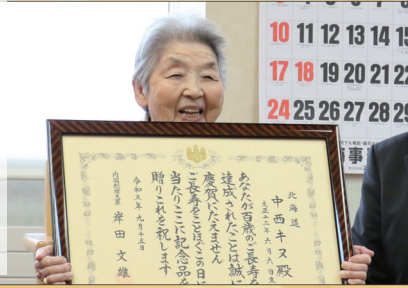 10 11 12 13 14 15
17 18 19 20 21 22
24 25 26 27 28 29
北海道
中西キヌ殿
あなたが百歳のご長寿を
達成されたことは誠に
慶賀にたえません
ご長寿をことほぐこの日に
当たりここに記念品を
贈りこれを祝します
令和五年九月十五日
内閣総理大臣 岸田文雄